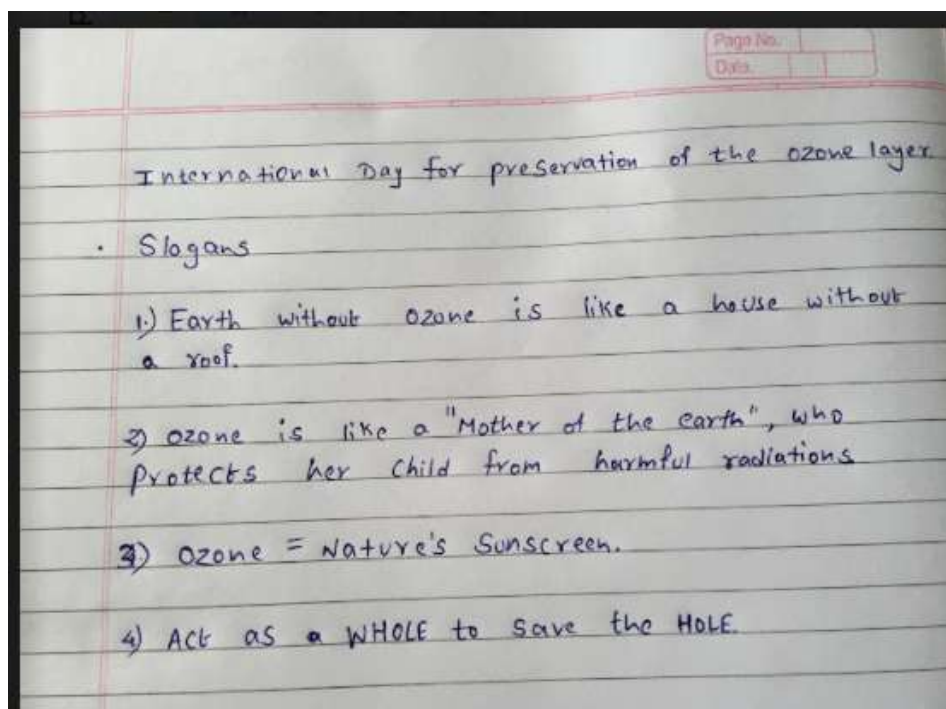 Page No.
Date.
International Day for preservation of the ozone layer
. Slogans
1.) Earth without ozone is like a house without
a roof.
2) ozone is like a "Mother of the earth", who
protects her child from harmful radiations
3) ozone = Nature's Sunscreen.
4) Act as a WHOLE to save the HOLE.